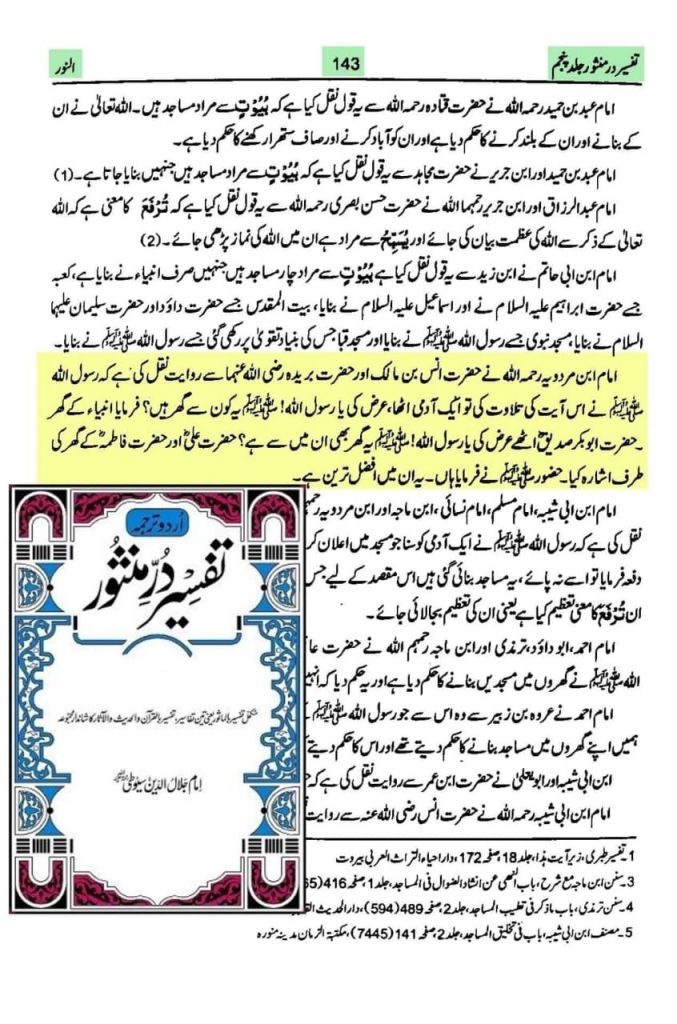 تفسیر در منثور جلد پنجم
143
النور
امام عبد بن حمید رحمہ اللہ نے حضرت قتادہ رحمہ اللہ سے یہ قول نقل کیا ہے کہ بُیُوْتٍ سے مراد مساجد ہیں۔ اللہ تعالیٰ نے ان
کے بنانے اور ان کے بلند کرنے کا حکم دیا ہے اور ان کو آباد کرنے اور صاف ستھرار کھنے کا حکم دیا ہے۔
امام عبد بن حمید اور ابن جریر نے حضرت مجاہد سے یہ قول نقل کیا ہے کہ بُیُوْتٍ سے مراد مساجد ہیں جنہیں بنایا جاتا ہے۔ (1)
امام عبدالرزاق اور ابن جریر رحمہما اللہ نے حضرت حسن بصری رحمہ اللہ سے یہ قول نقل کیا ہے کہ تُرْفَعَ کا معنی ہے کہ اللہ
تعالیٰ کے ذکر سے اللہ کی عظمت بیان کی جائے اور یُسَبِّحُ سے مراد ہے ان میں اللہ کی نماز پڑھی جائے۔ (2)
امام ابن ابی حاتم نے ابن زید سے یہ قول نقل کیا ہے بُیُوْتٍ سے مراد چار مساجد ہیں جنہیں صرف انبیاء نے بنایا ہے، کعبہ
جسے حضرت ابراہیم علیہ السلام نے اور اسماعیل علیہ السلام نے بنایا، بیت المقدس جسے حضرت داؤد اور حضرت سلیمان علیہما
السلام نے بنایا، مسجد نبوی جسے رسول اللہ ﷺ نے بنایا اور مسجد قبا جس کی بنیاد تقویٰ پر رکھی گئی جسے رسول اللہ ﷺ نے بنایا۔
امام ابن مردویہ رحمہ اللہ نے حضرت انس بن مالک اور حضرت بریدہ رضی اللہ عنہما سے روایت نقل کی ہے کہ رسول اللہ
ﷺ نے اس آیت کی تلاوت کی تو ایک آدمی اٹھا، عرض کی یا رسول اللہ! ﷺ یہ کون سے گھر ہیں؟ فرمایا انبیاء کے گھر
۔ حضرت ابوبکر صدیقؓ اٹھے عرض کی یا رسول اللہ! ﷺ یہ گھر بھی ان میں سے ہے؟ حضرت علیؓ اور حضرت فاطمہؓ کے گھر کی
طرف اشارہ کیا۔ حضور ﷺ نے فرمایا ہاں۔ یہ ان میں افضل ترین ہے۔
امام ابن ابی شیبہ، امام مسلم، امام نسائی، ابن ماجہ اور ابن مردویہ رحمہ
نقل کی ہے کہ رسول اللہ ﷺ نے ایک آدمی کو سنا جو مسجد میں اعلان کر
دفعہ فرمایا تو اسے نہ پائے، یہ مساجد بنائی گئی ہیں اس مقصد کے لیے جس
ان تُرْفَعَ کا معنی تعظیم کیا ہے یعنی ان کی تعظیم بجالائی جائے۔
امام احمد، ابو داؤد، ترمذی اور ابن ماجہ رحمہم اللہ نے حضرت عا
اللہ ﷺ نے گھروں میں مسجدیں بنانے کا حکم دیا ہے اور یہ حکم دیا کہ انہیں
امام احمد نے عروہ بن زبیر سے وہ اس سے جو رسول اللہ ﷺ
ہمیں اپنے گھروں میں مساجد بنانے کا حکم دیتے تھے اور اس کا حکم دیتے
ابن ابی شیبہ اور ابو یعلیٰ نے حضرت ابن عمر سے روایت نقل کی ہے کہ
امام ابن ابی شیبہ رحمہ اللہ نے حضرت انس رضی اللہ عنہ سے روایت
1۔ تفسیر طبری، زیر آیت ہذا، جلد 18، صفحہ 172، دار احیاء التراث العربی بیروت
3۔ سنن ابن ماجہ مع شرح، باب النہی عن انشاد الضوال فی المساجد، جلد 1 صفحہ 416 (65
4۔ سنن ترمذی، باب ماذکر فی تطییب المساجد، جلد 2، صفحہ 489 (594)، دار الحدیث القا
5۔ مصنف ابن ابی شیبہ، باب فی تخلیق المساجد، جلد 2، صفحہ 141 (7445)، مکتبۃ الزمان مدینہ منورہ
اردو ترجمہ
تفسیر دُرِّ منثور
مکمل تفسیر بالماثور یعنی تین تفاسیر: تفسیر بالقرآن والحدیث والآثار کا شاندار مجموعہ
امام جلال الدین سیوطی